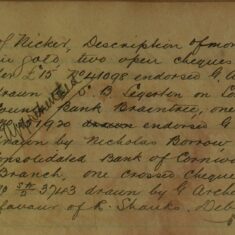 Nicket, Description of mon
in gold, two open cheques
for £15 No 41098 endorsed G. A
drawn S. B. Legerton on C
County Bank Braintree, one
1920 drawn endorsed G
drawn by Nicholas Borrow
Consolidated Bank of Cornw
Branch, one crossed cheque
No 3743 drawn by G Arche
favour of R. Shanks. Deb